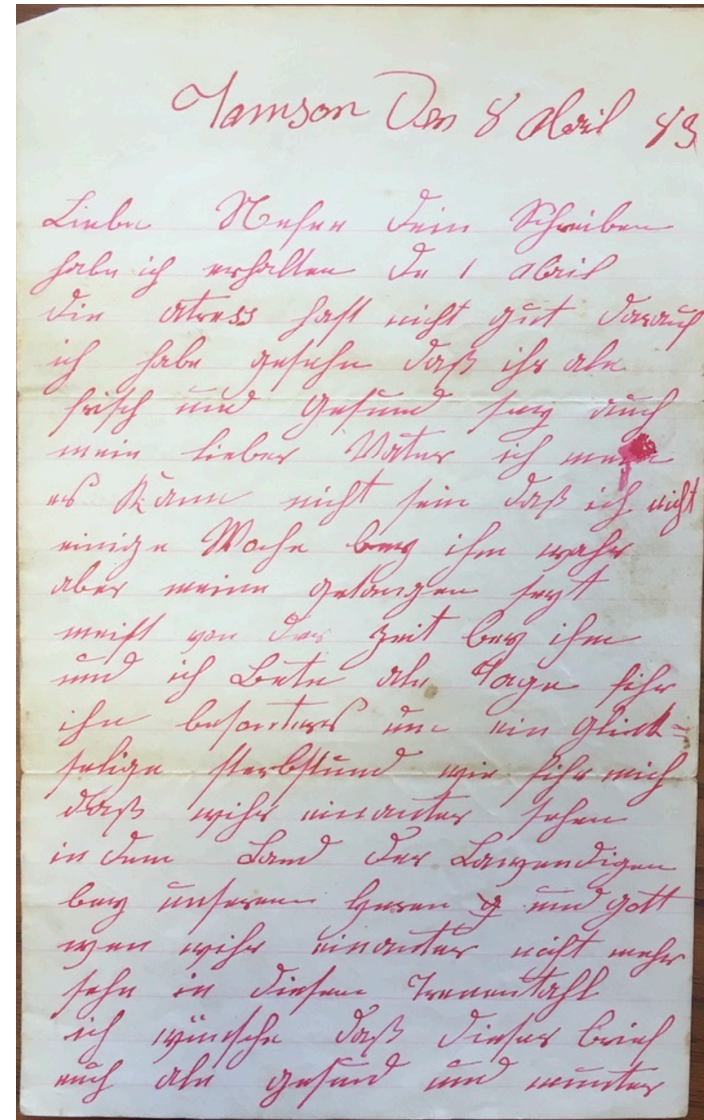 Jamson Den 8 Abril 83
Liebe Nefen dein Schreiben
habe ich erhalten de 1 abril
die atress hast nicht gut darauf
ich habe gesehn daß ihr ale
frisch und Gesund sey auch
mein lieber Vater ich mein
es Kann nicht sein daß ich nicht
einige Woche bey ihm wahr
aber meine gedangen seyt
meist von der Zeit bey ihm
und ich Bete ale Tage fihr
ihn besonters um ein glick-
selige sterbstund wie fihr mich
daß wihr einanter sehen
in dem Land der Lawendigen
bey unserem Heren und gott
wen wihr einanter nicht mehr
sehn in diesem Trenentahl
ich wünsche daß dieser brief
euch ale gesund und munter